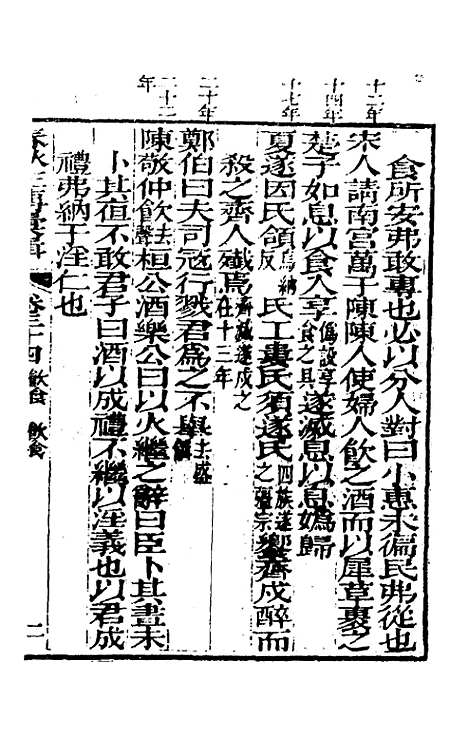 食所安弗敢專也必以分人對曰小惠未徧民弗從也
十二年
宋人請南宮萬于陳陳人使婦人飲之酒而以犀革裹之
十四年
楚子如息以食入享偽設享食之具遂滅息以息媯歸
十七年
夏遂因氏頜烏納反氏工婁氏須遂氏四族遂之彊宗饗齊戍醉而
殺之齊人殲焉齊滅遂戍之在十三年
二十年
鄭伯曰夫司寇行戮君為之不舉去盛饌
二十二年
陳敬仲飲去聲桓公酒樂公曰以火繼之辭曰臣卜其晝未
卜其夜不敢君子曰酒以成禮不繼以淫義也以君成
禮弗納于淫仁也
卷三十四 飲食 飲食 二